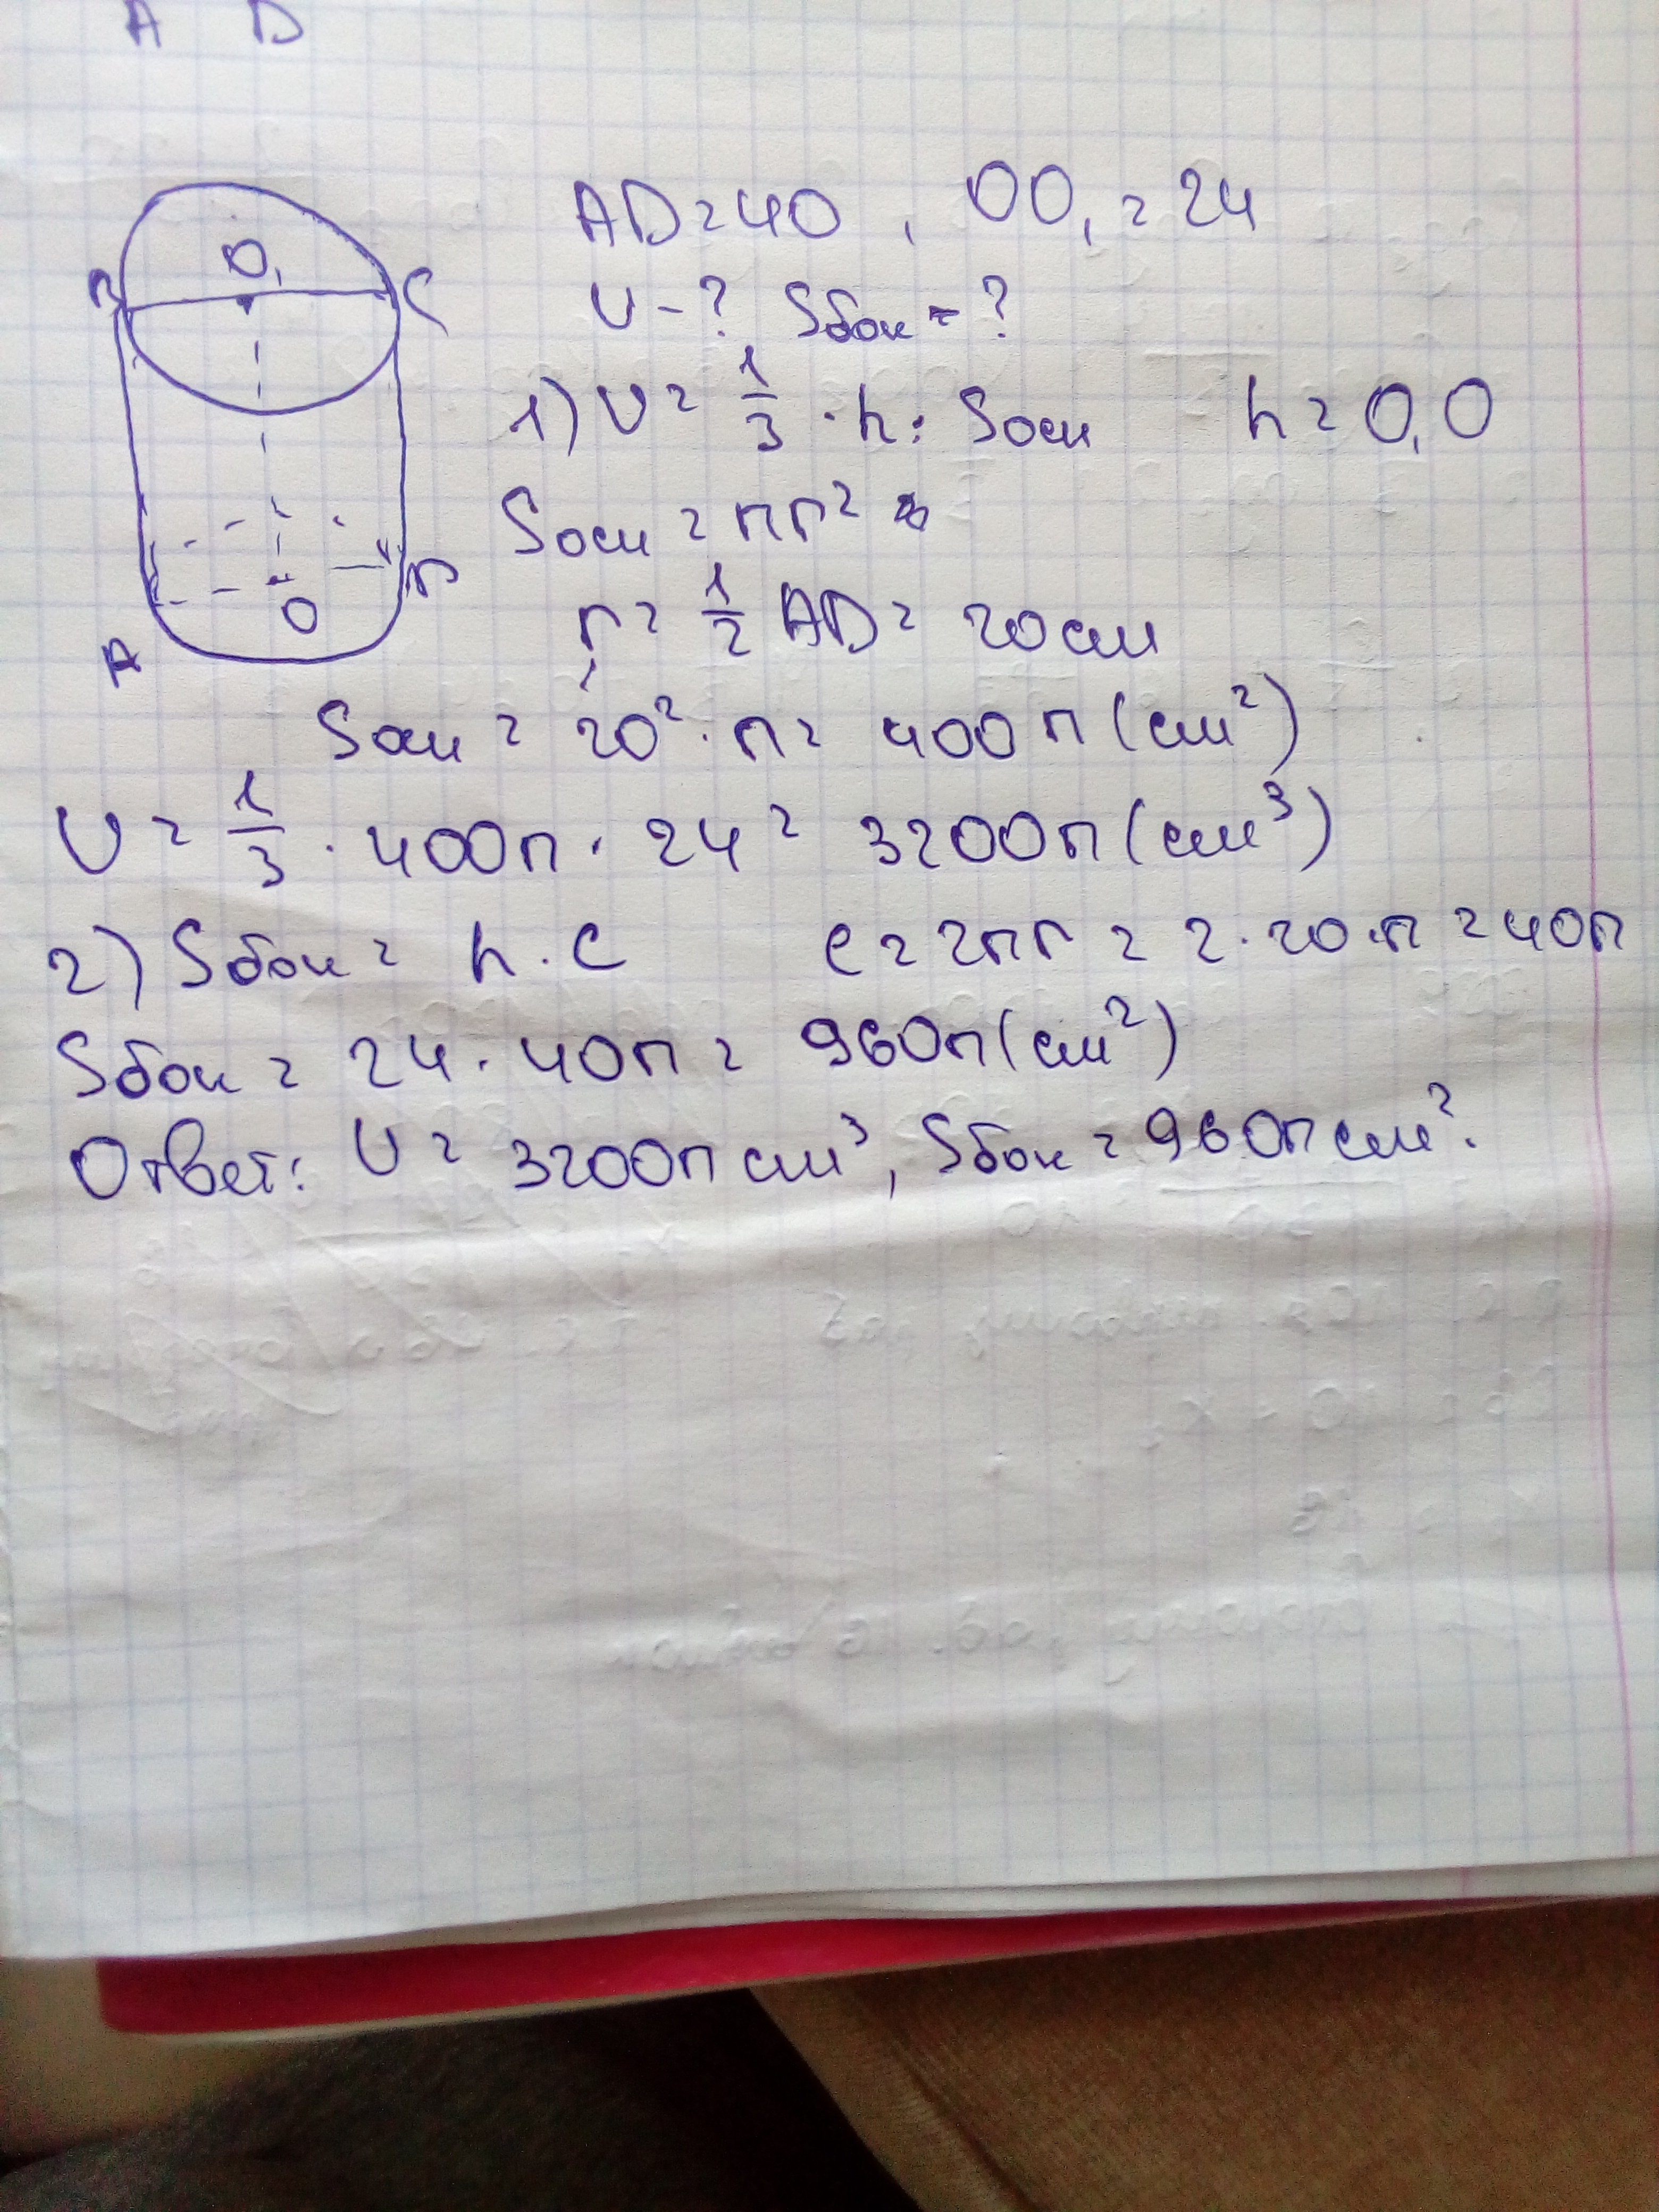 A D
AD = 40, OO₁ = 24
V - ? Sбок = ?
1) V = 1/3 · h · Sосн h = O₁O
Sосн = πr²
r = 1/2 AD = 20 см
Sосн = 20² · π = 400π (см²)
V = 1/3 · 400π · 24 = 3200π (см³)
2) Sбок = h · C C = 2πr = 2 · 20 · π = 40π
Sбок = 24 · 40π = 960π (см²)
Ответ: V = 3200π см³, Sбок = 960π см².
B O₁ C
A O D